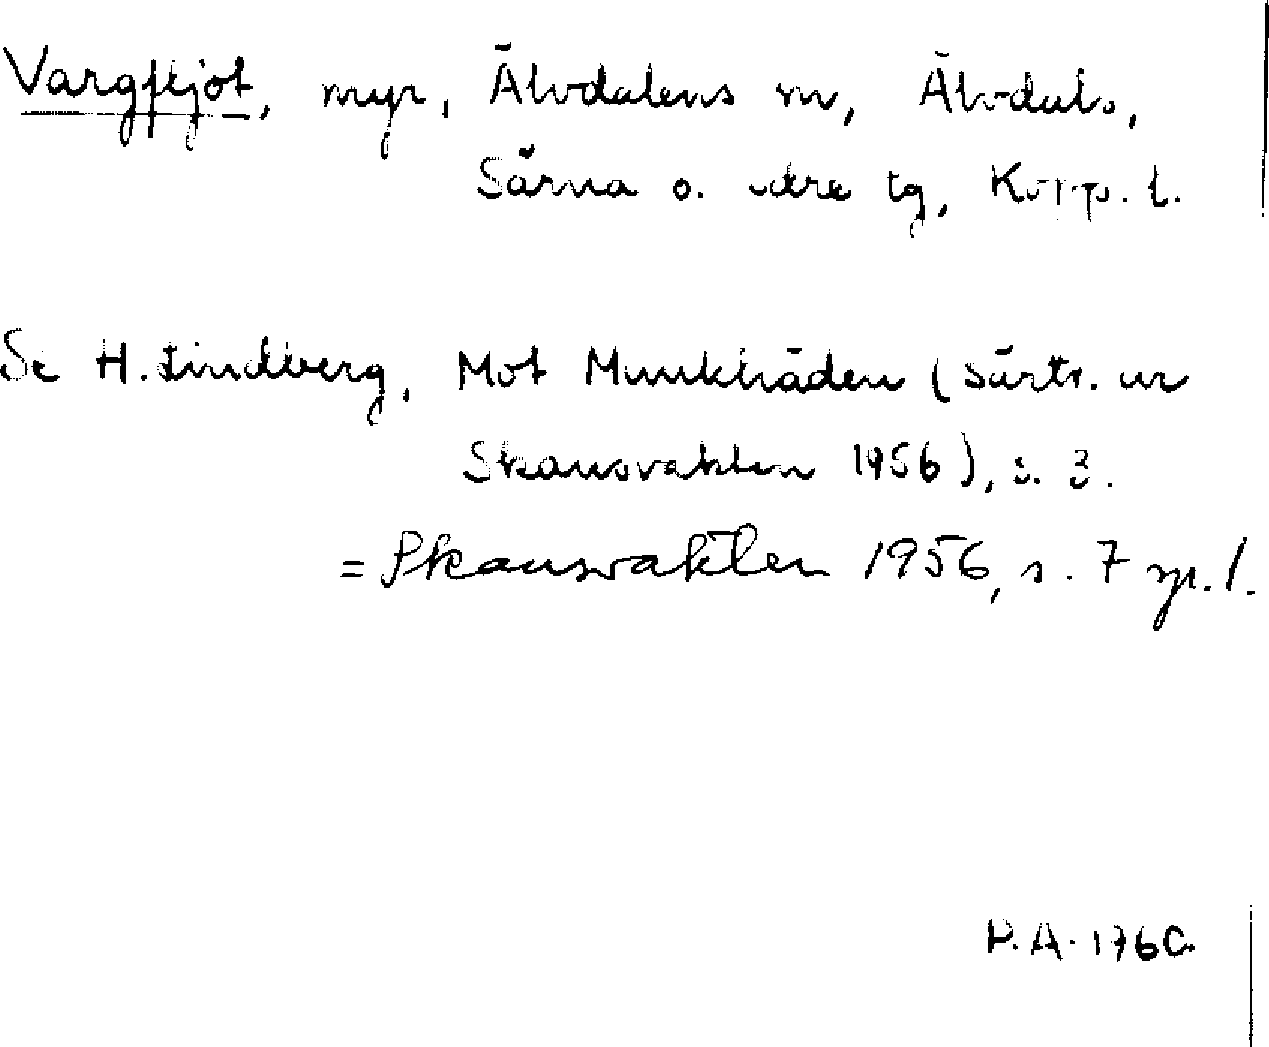 Vargfljot, myr, Älvdalens sn, Älvdals,
Särna o. Idre tg, Kopp. l.
Se H. Lindberg, Mot Munkbäden (särtr. ur
Skansvakten 1956), s. 3.
= Skansvakten 1956, s. 7 sp. 1.